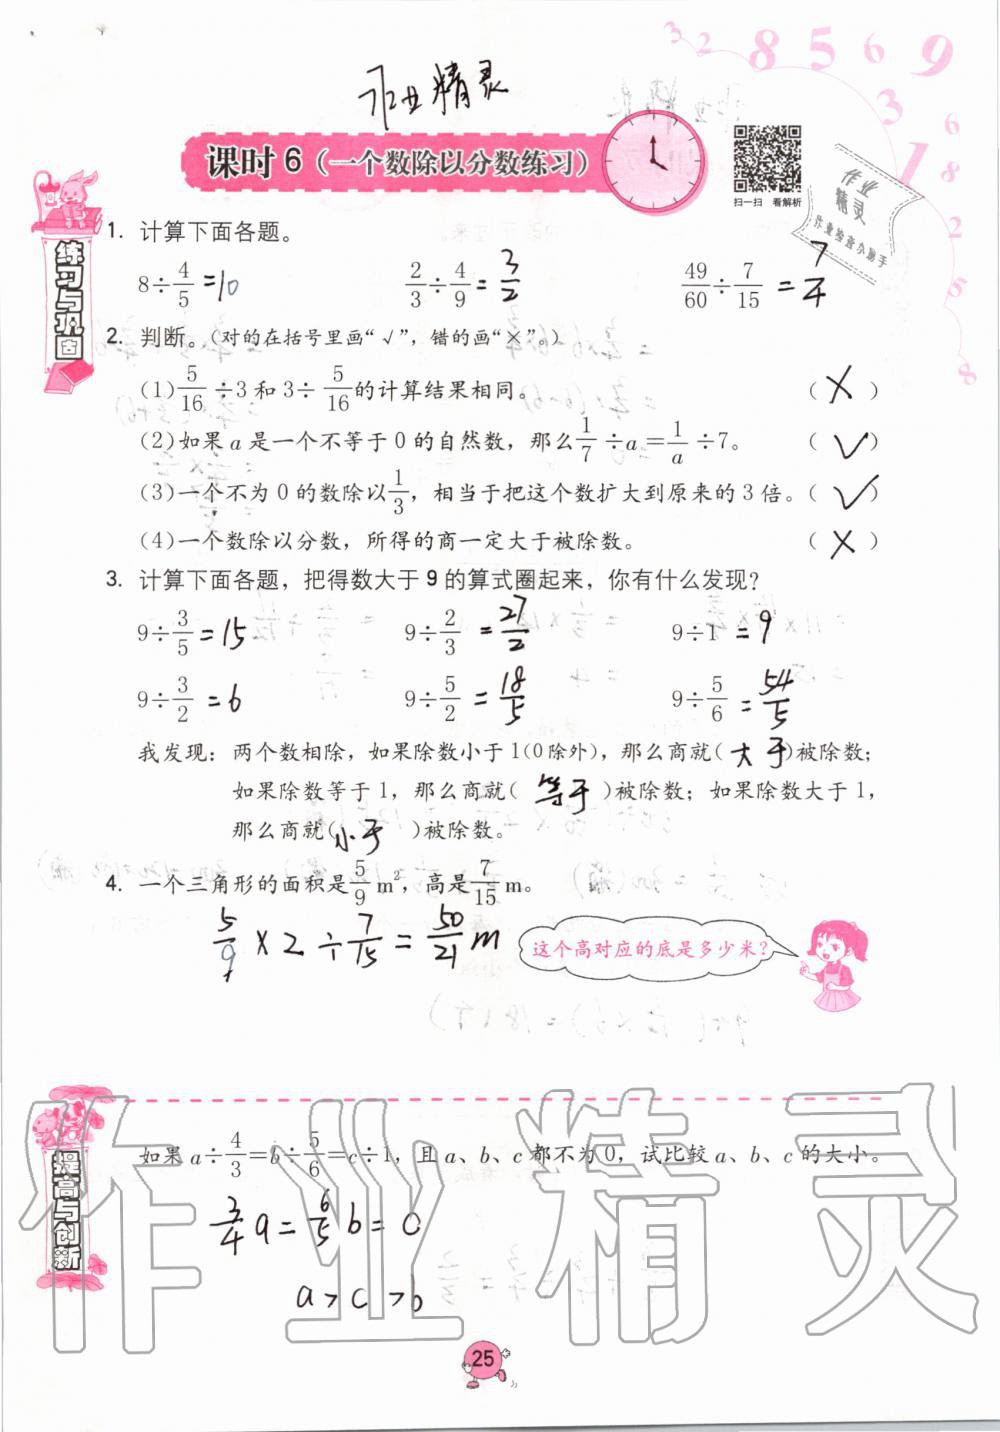 3 2 8 5 6 9 3 1 6 8 2 5 8
作业精灵
课时6(一个数除以分数练习)
扫一扫 看解析
作业
精灵
作业检查小助手
练习与巩固
1. 计算下面各题。
8÷4/5=10 2/3÷4/9=3/2 49/60÷7/15=7/4
2. 判断。(对的在括号里画“√”，错的画“×”。)
(1)5/16÷3和3÷5/16的计算结果相同。 (×)
(2)如果a是一个不等于0的自然数，那么1/7÷a=1/a÷7。 (√)
(3)一个不为0的数除以1/3，相当于把这个数扩大到原来的3倍。(√)
(4)一个数除以分数，所得的商一定大于被除数。 (×)
3. 计算下面各题，把得数大于9的算式圈起来，你有什么发现?
9÷3/5=15 9÷2/3=27/2 9÷1=9
9÷3/2=6 9÷5/2=18/5 9÷5/6=54/5
我发现：两个数相除，如果除数小于1(0除外)，那么商就(大于)被除数；
如果除数等于1，那么商就(等于)被除数；如果除数大于1，
那么商就(小于)被除数。
4. 一个三角形的面积是5/9 m²，高是7/15 m。
5/9×2÷7/15=50/21m
这个高对应的底是多少米?
提高与创新
如果a÷4/3=b÷5/6=c÷1，且a、b、c都不为0，试比较a、b、c的大小。
3/4a=6/5b=C
a>c>b
作业精灵
25